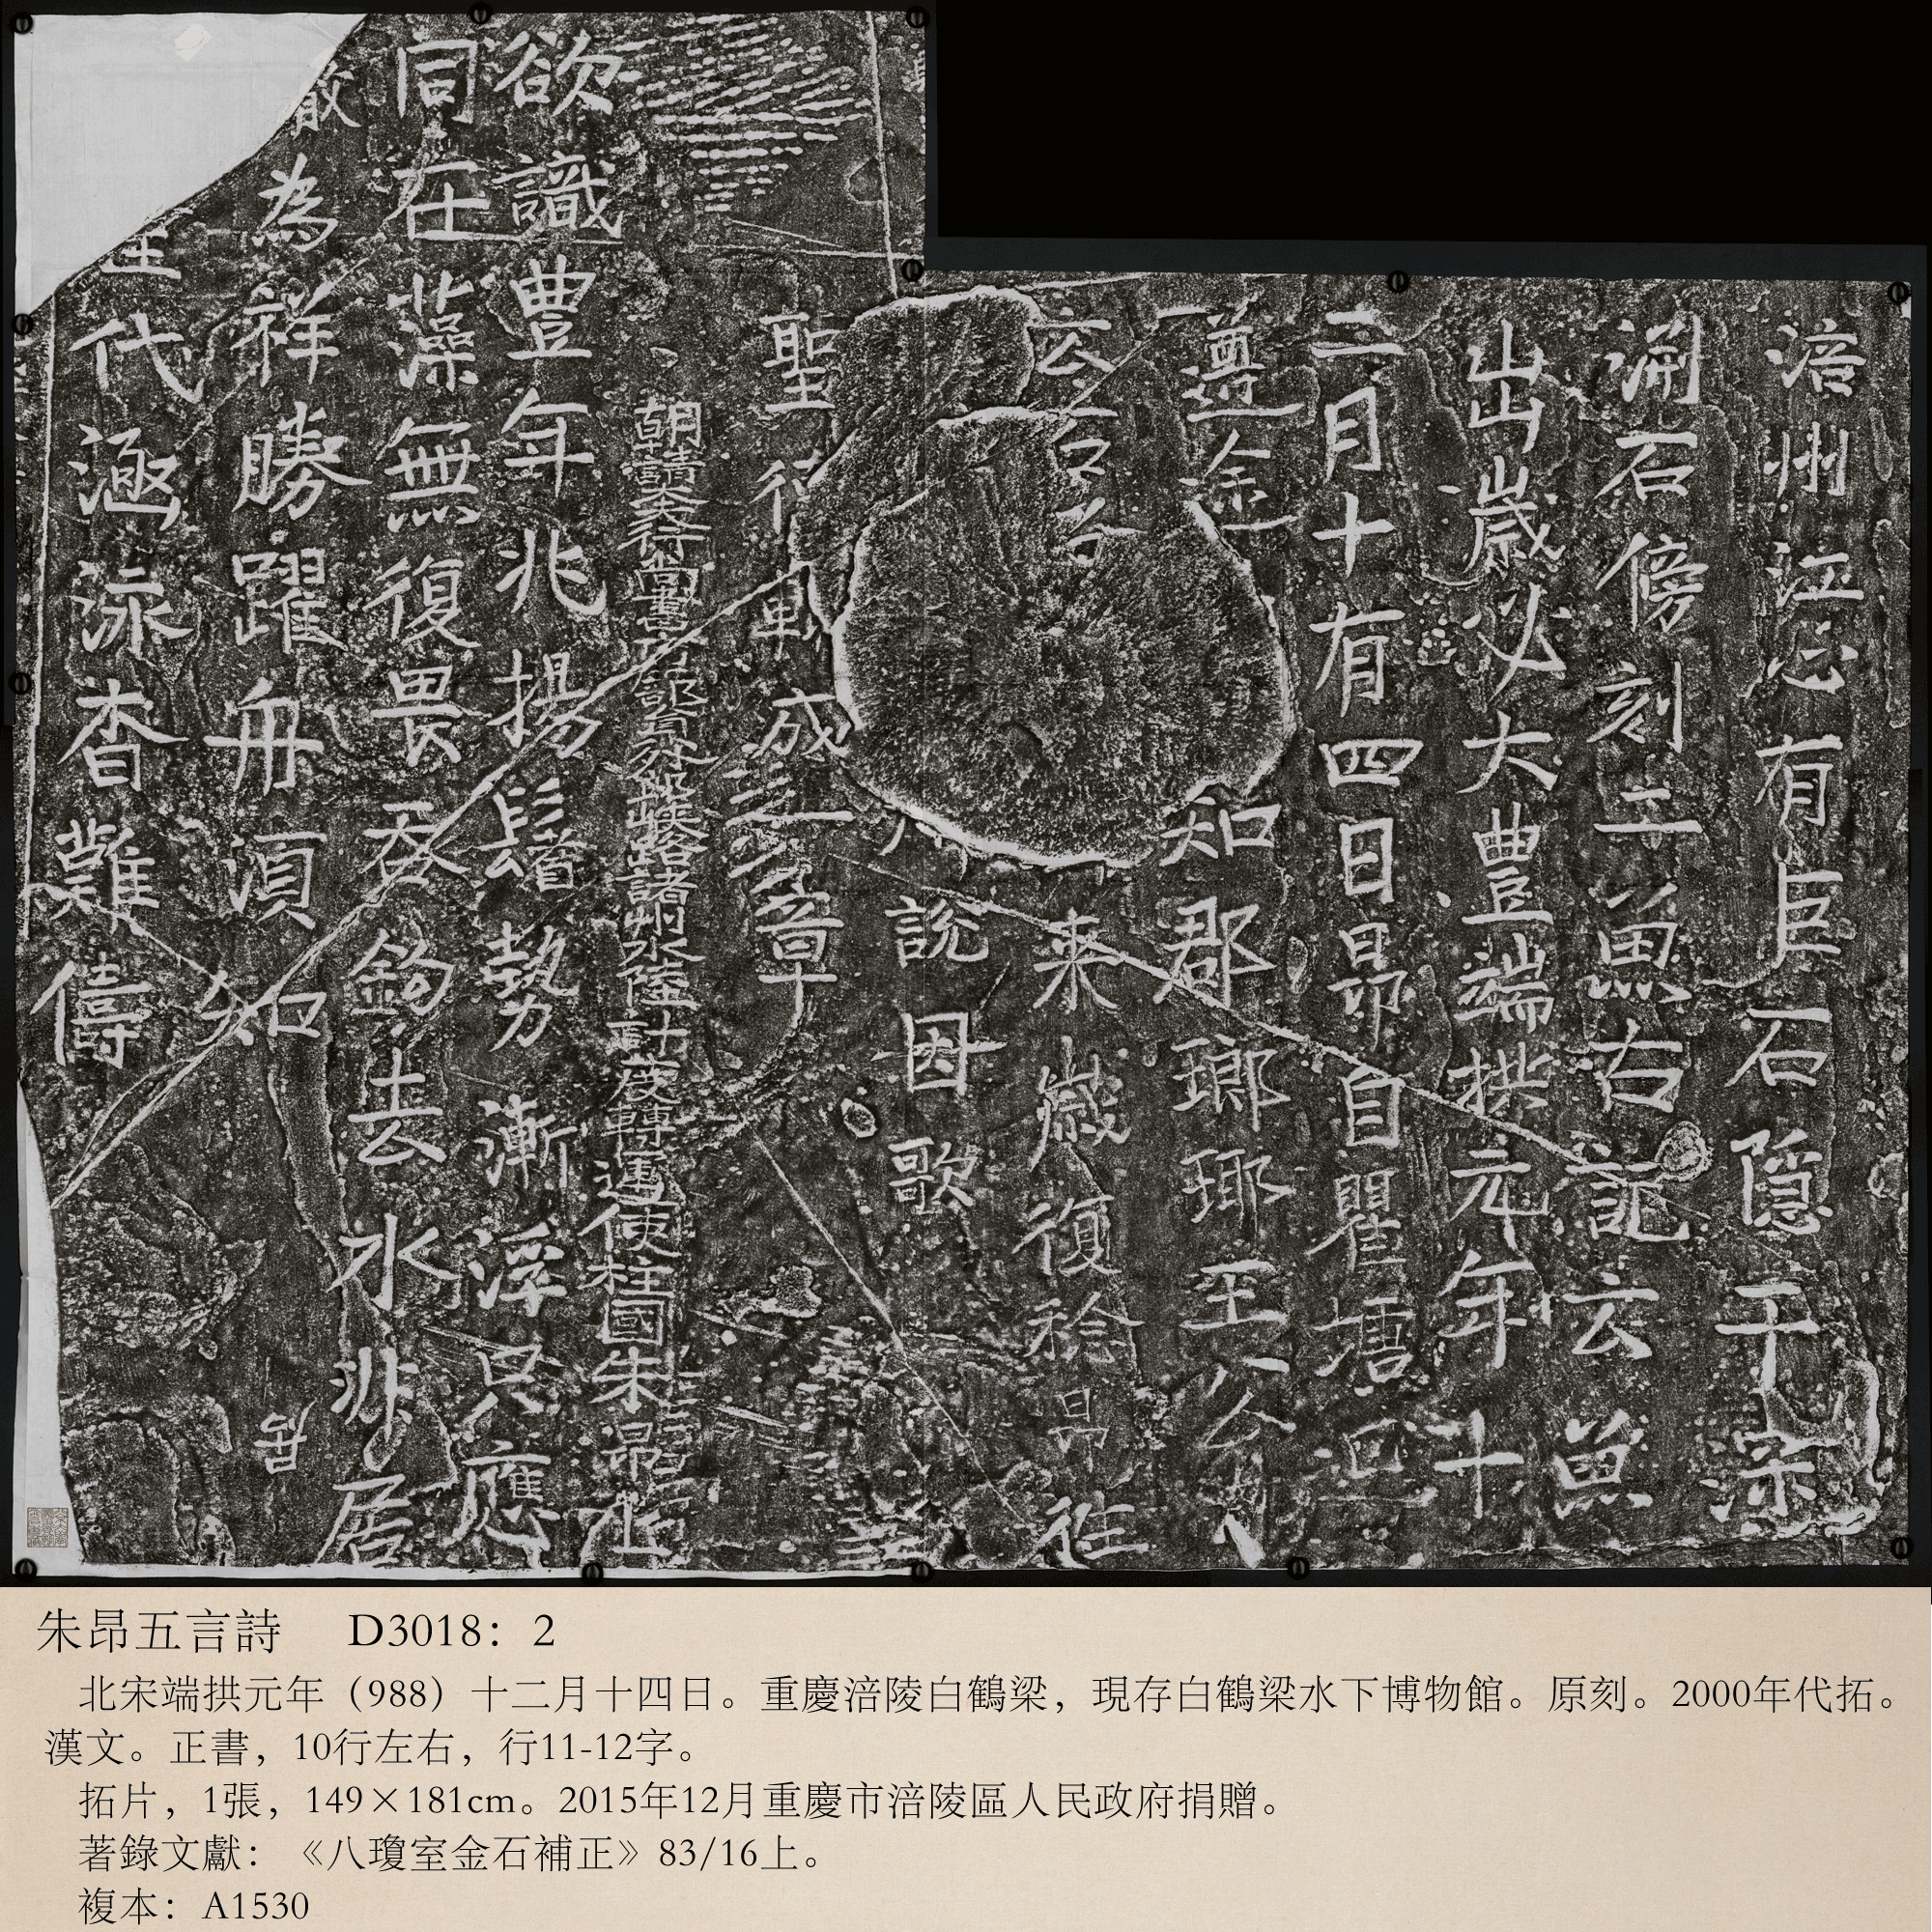 涪州江心有巨石隱于深
淵石傍刻二魚右記云魚
出歲必大豐端拱元年十
二月十有四日昂自瞿塘回
遵途知郡瑯琊王公
云
来歲復稔昂往
說因歌
聖德輒成章
朝請大夫行尚書峽路諸州水陸計度轉運使柱國朱昂上
欲識豐年兆揚鬐勢漸浮只應
同在藻無復畏吞鉤去水非居
為祥勝躍舟須知
代涵泳杳難儔
朱昂五言詩 D3018：2
北宋端拱元年（988）十二月十四日。重慶涪陵白鶴梁，現存白鶴梁水下博物館。原刻。2000年代拓。
漢文。正書，10行左右，行11-12字。
拓片，1張，149×181cm。2015年12月重慶市涪陵區人民政府捐贈。
著錄文獻：《八瓊室金石補正》83/16上。
複本：A1530